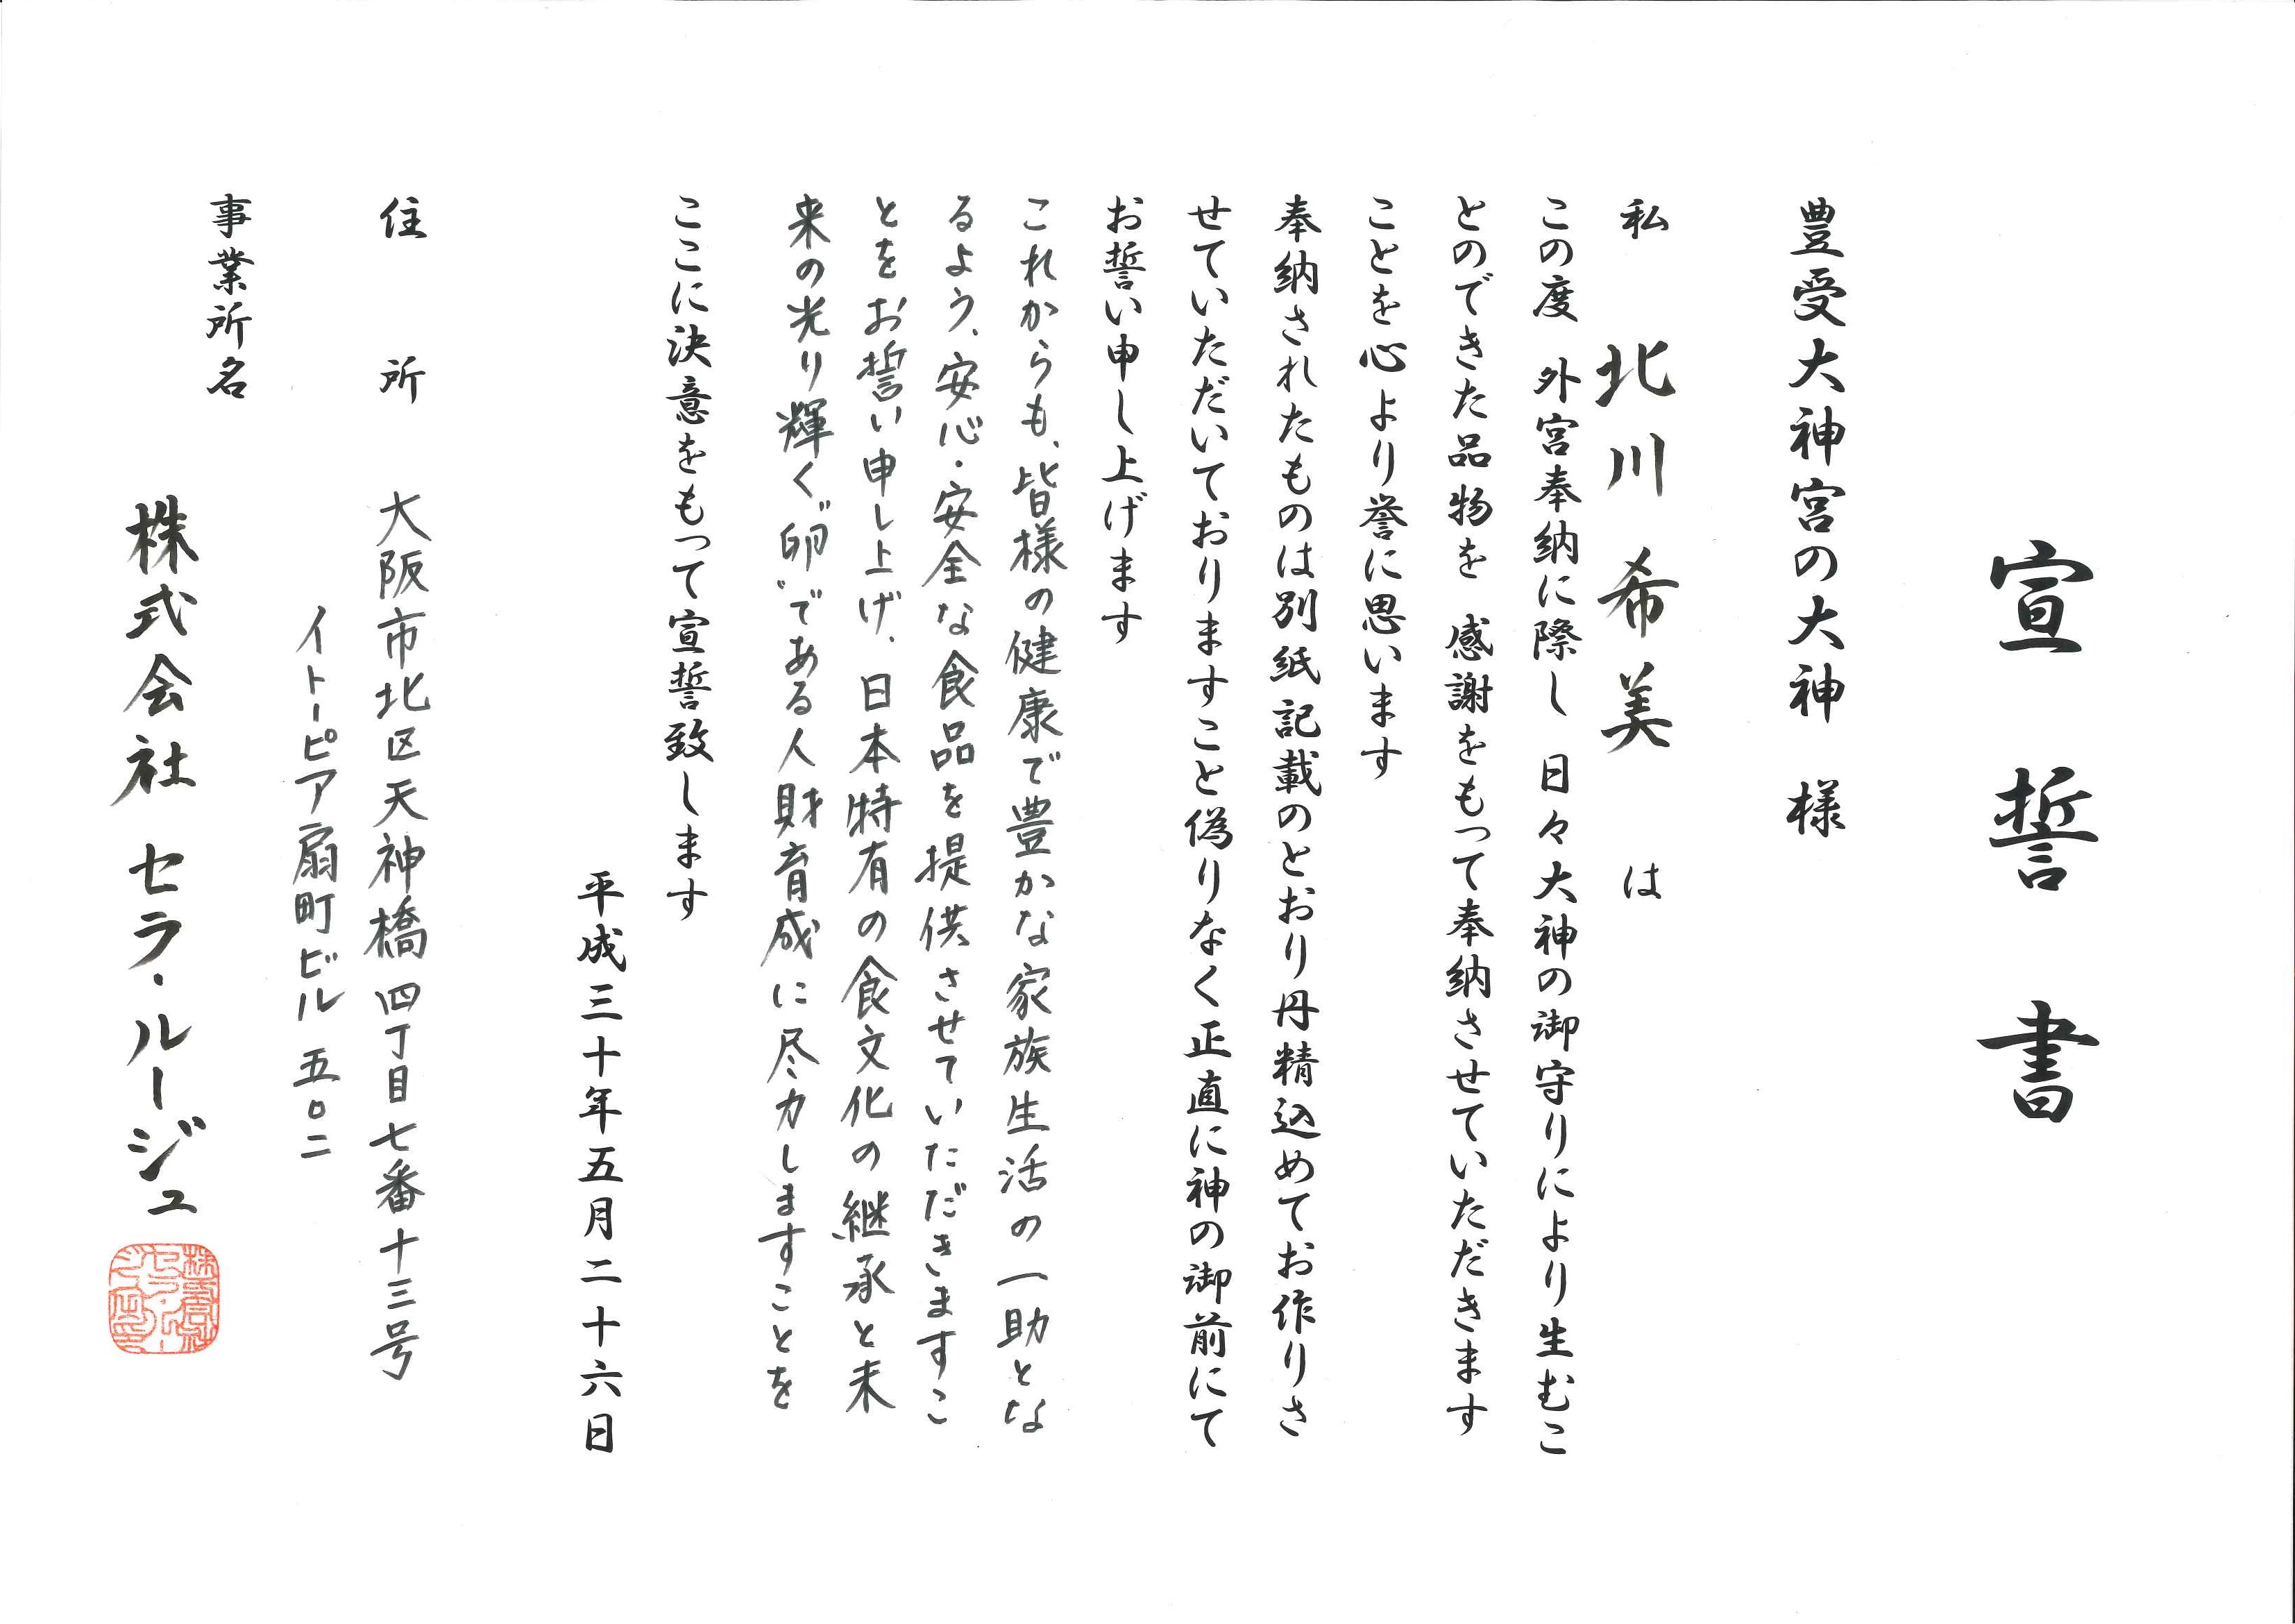 宣誓書
豊受大神宮の大神 様
私 北川希美 は
この度 外宮奉納に際し 日々大神の御守りにより生むこ
とのできた品物を 感謝をもって奉納させていただきます
ことを心より誉に思います
奉納されたものは別紙記載のとおり丹精込めてお作りさ
せていただいておりますこと偽りなく正直に神の御前にて
お誓い申し上げます
これからも、皆様の健康で豊かな家族生活の一助とな
るよう、安心・安全な食品を提供させていただきますこ
とをお誓い申し上げ、日本特有の食文化の継承と未
来の光り輝く“卵”である人財育成に尽力しますことを
ここに決意をもって宣誓致します
平成三十年五月二十六日
住所 大阪市北区天神橋四丁目七番十三号
イトーピア扇町ビル 五〇二
事業所名
株式会社 セラ・ルージュ